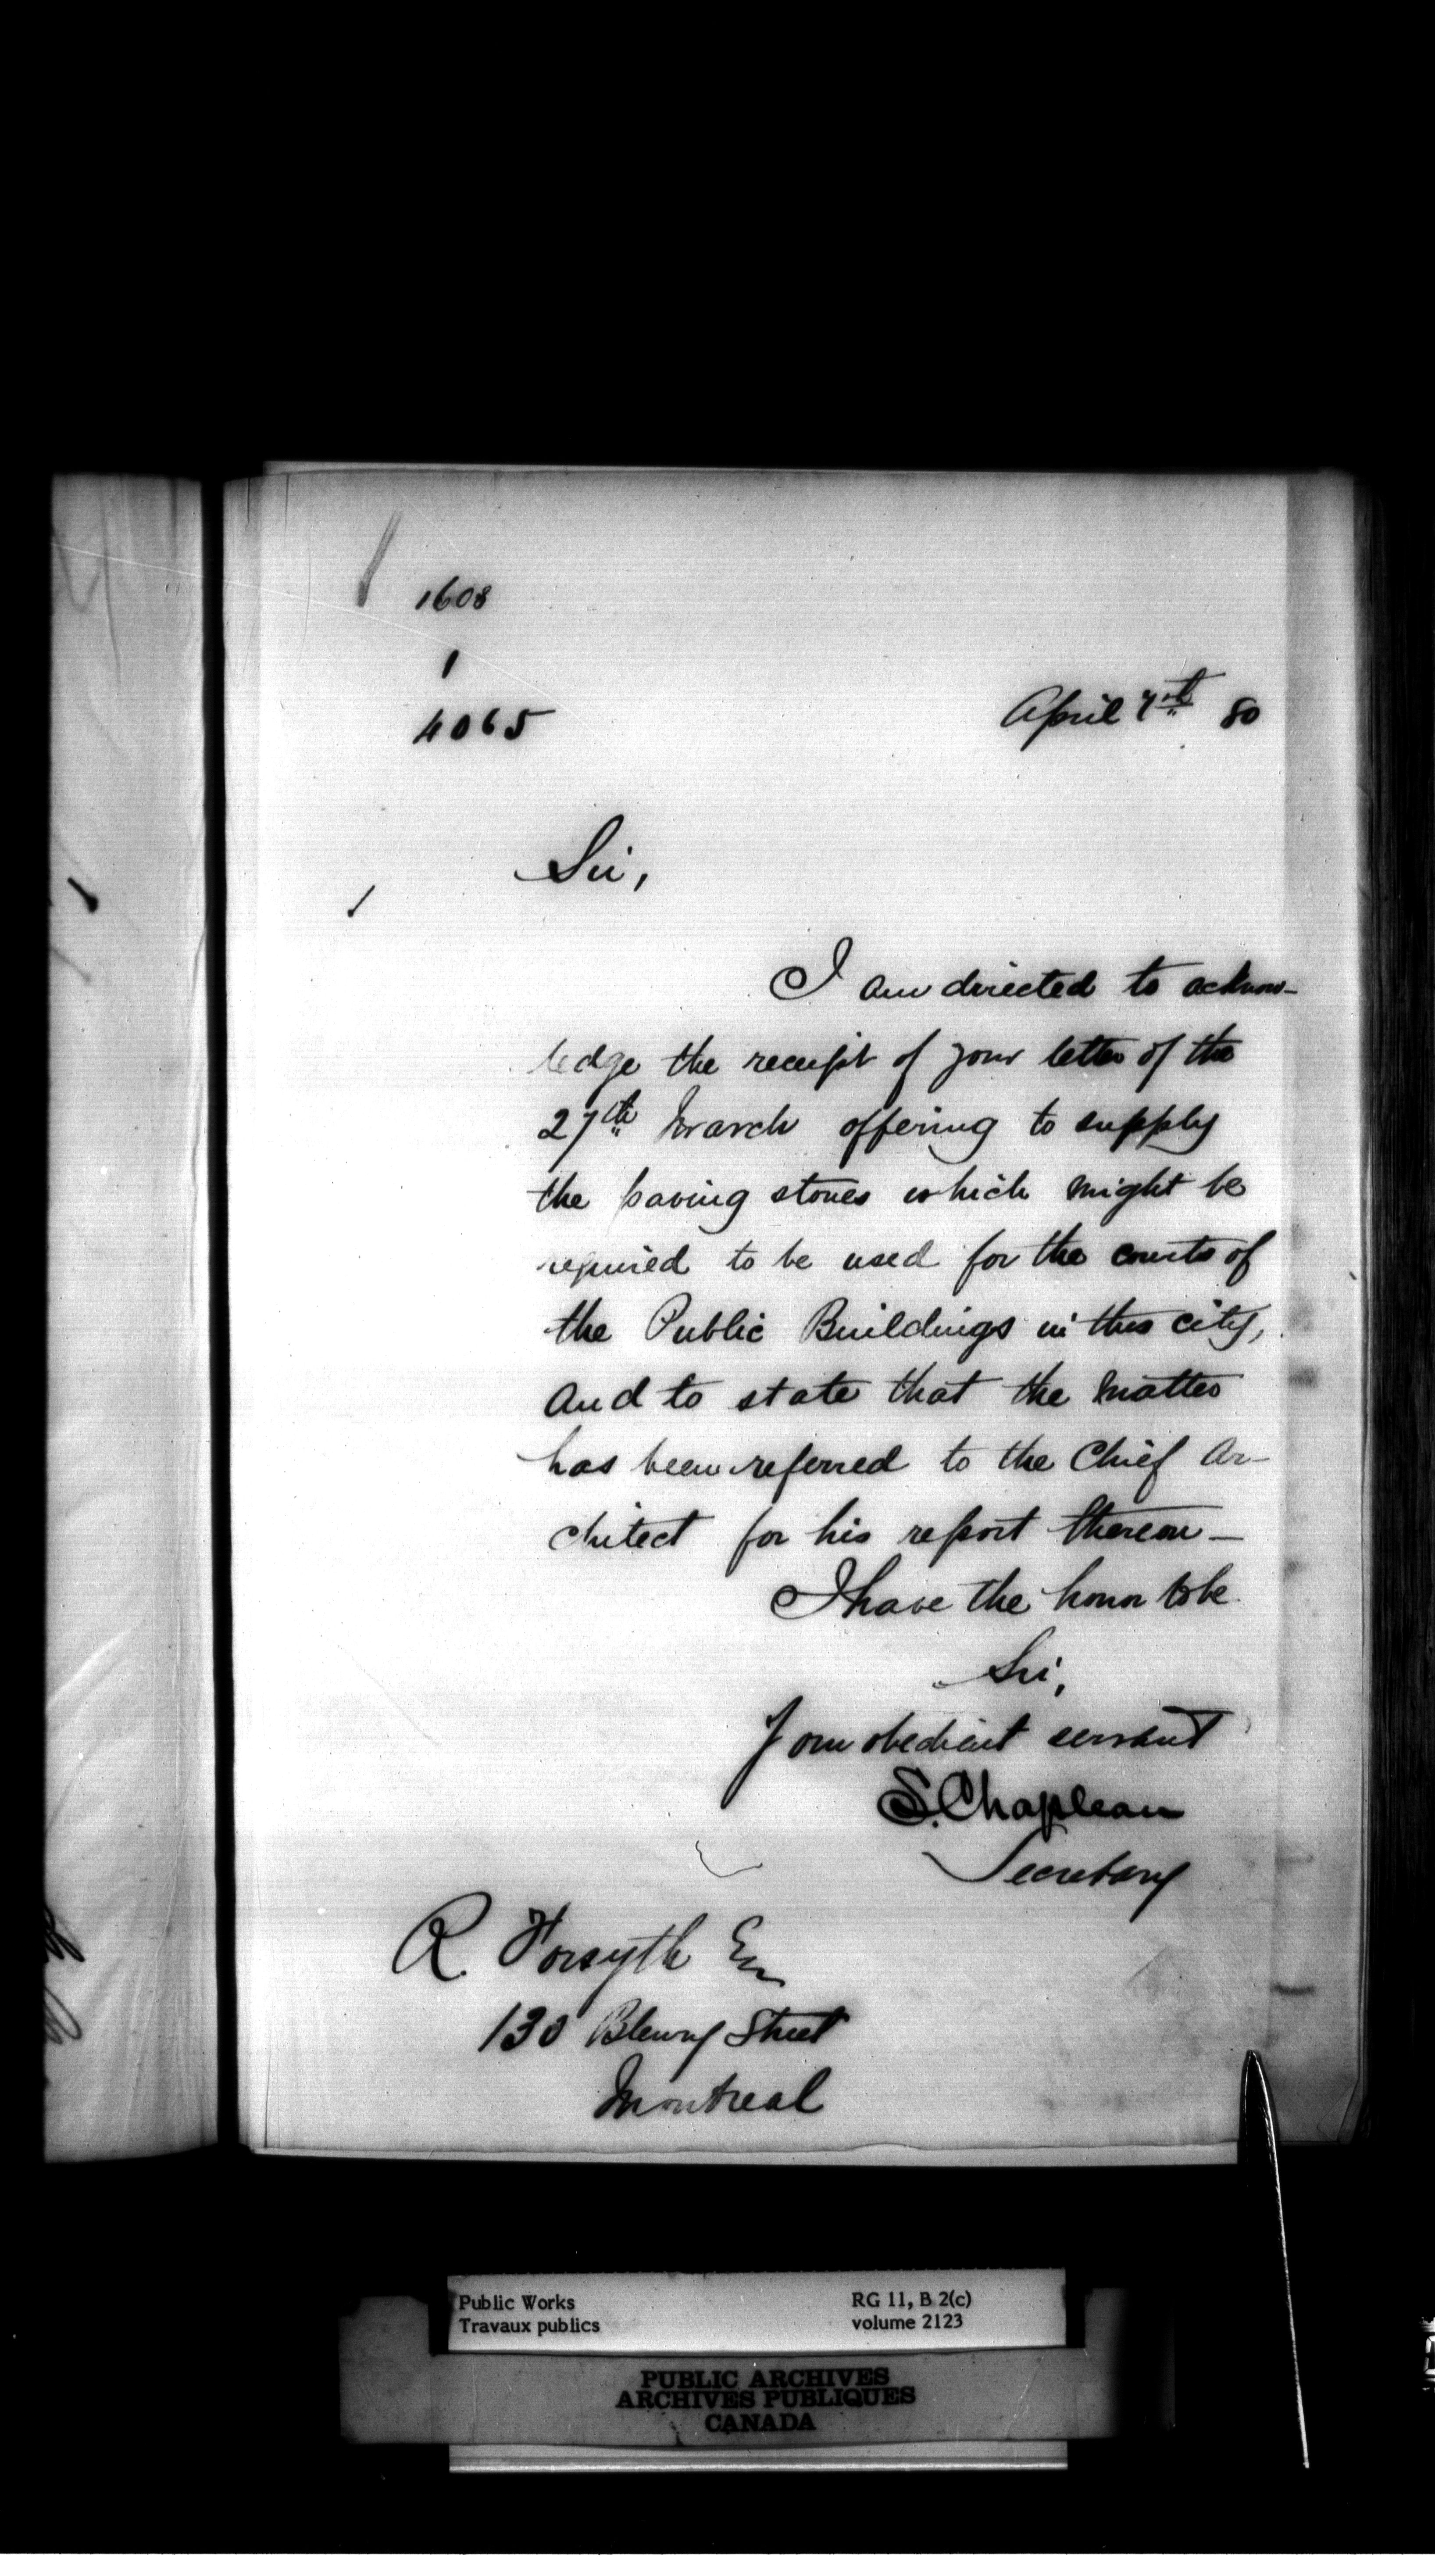 1608
1
4065
April 7th 80
Sir,
I am directed to acknow-
ledge the receipt of your letter of the
27th March offering to supply
the paving stones which might be
required to be used for the courts of
the Public Buildings in this city,
and to state that the matter
has been referred to the Chief Ar-
chitect for his report thereon –
I have the honor to be
Sir,
Your obedient servant
S. Chapleau
Secretary
R. Forsyth Esq
130 Bleury Street
Montreal
Public Works
Travaux publics
RG 11, B 2(c)
volume 2123
PUBLIC ARCHIVES
ARCHIVES PUBLIQUES
CANADA